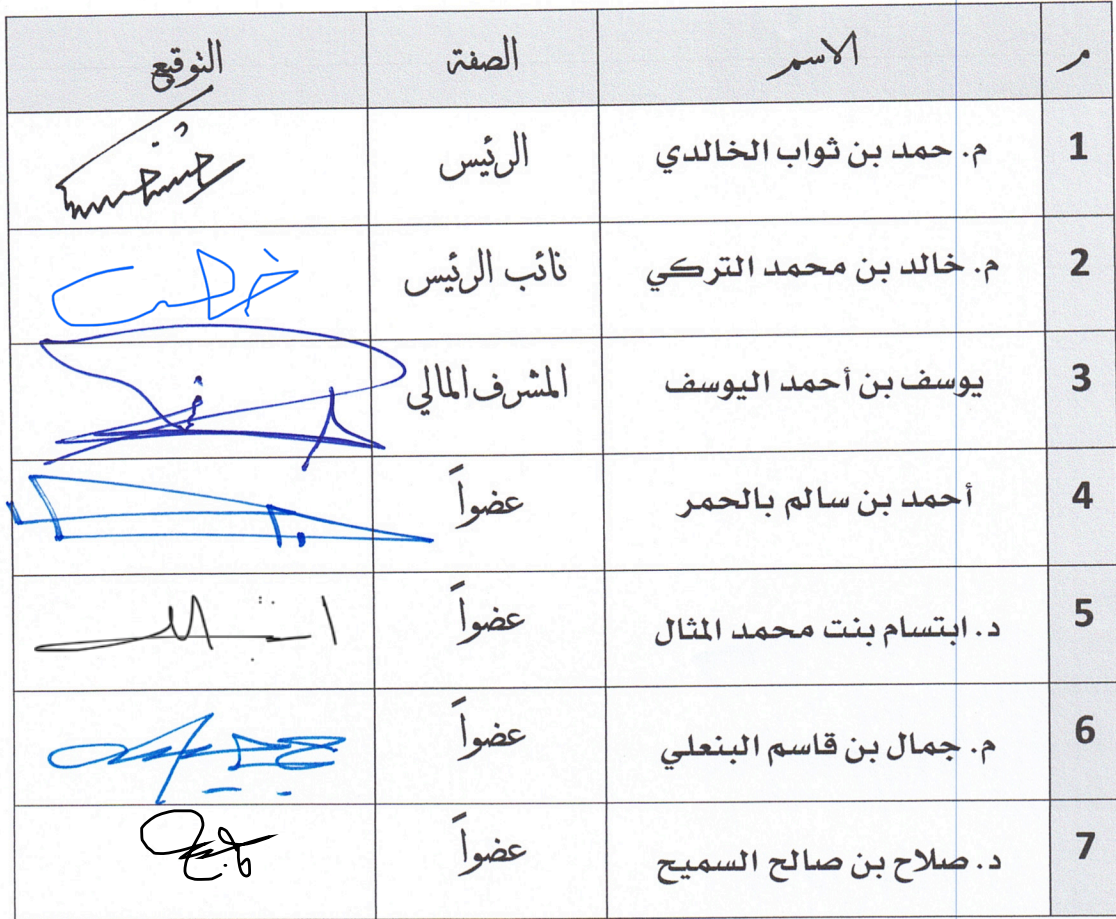 م الاسم الصفة التوقيع
1 م. حمد بن ثواب الخالدي الرئيس
2 م. خالد بن محمد التركي نائب الرئيس
3 يوسف بن أحمد اليوسف المشرف المالي
4 أحمد بن سالم بالحمر عضواً
5 د. ابتسام بنت محمد المثال عضواً
6 م. جمال بن قاسم البنعلي عضواً
7 د. صلاح بن صالح السميح عضواً